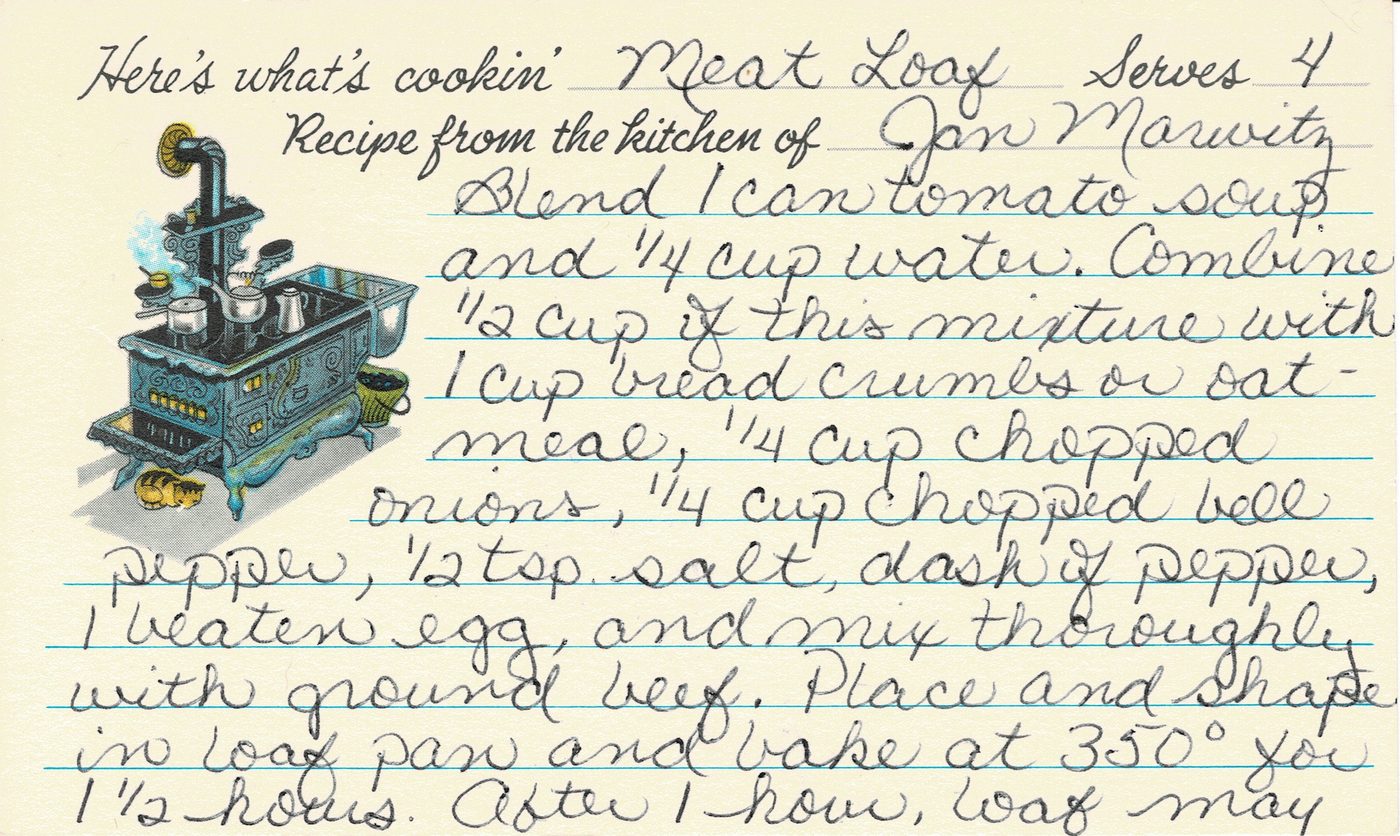 Here's what's cookin' Meat Loaf Serves 4
Recipe from the kitchen of Jan Marwitz
Blend 1 can tomato soup
and 1/4 cup water. Combine
1/2 cup of this mixture with
1 cup bread crumbs or oat-
meal, 1/4 cup chopped
onions, 1/4 cup chopped bell
pepper, 1/2 tsp. salt, dash of pepper,
1 beaten egg, and mix thoroughly
with ground beef. Place and shape
in loaf pan and bake at 350° for
1 1/2 hours. After 1 hour, loaf may